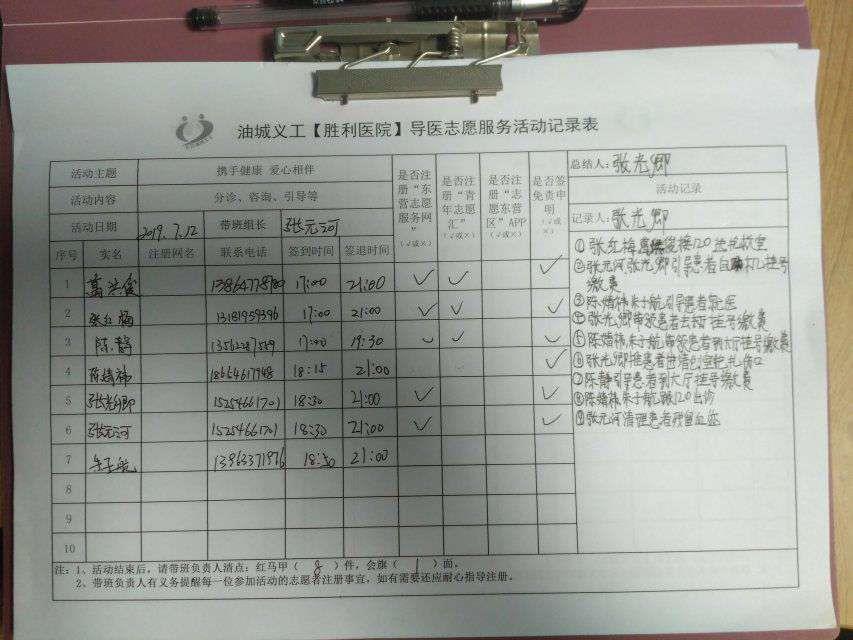 油城义工【胜利医院】导医志愿服务活动记录表
活动主题 携手健康 爱心相伴
活动内容 分诊、咨询、引导等
活动日期 2019.7.12 带班组长 张元河
序号 实名 注册网名 联系电话 签到时间 签退时间
是否注册“东营志愿服务网”（√或×）
是否注册“青年志愿汇”（√或×）
是否注册“志愿东营区”APP（√或×）
是否签免责申明（√或×）
总结人：张光卿
活动记录
记录人：张光卿
1 17:00 21:00 √ √ √
2 张红梅 13181959396 17:00 21:00 √ √ √
3 陈静 17:00 19:30 √ √ √
4 陈婧祎 18664617948 18:15 21:00 √
5 张光卿 15254661701 18:30 21:00 √ √
6 张元河 15254661701 18:30 21:00 √ √
7 朱子航 13963371976 18:30 21:00
8
9
10
①张红梅 120送抢救室
②张元河,张光卿引导患者自 机挂号
缴费
③陈婧祎朱子航引导患者就医
④张光卿带领患者去 挂号缴费
⑤陈婧祎朱子航带领患者到大厅挂号缴费
⑥张光卿推患者去清创室包扎伤口
⑦陈静引导患者到大厅挂号缴费
⑧陈婧祎朱子航跟120出诊
⑨张元河清理患者残留血迹
注：1、活动结束后，请带班负责人清点：红马甲（ 8 ）件，会旗（ 1 ）面。
2、带班负责人有义务提醒每一位参加活动的志愿者注册事宜，如有需要还应耐心指导注册。